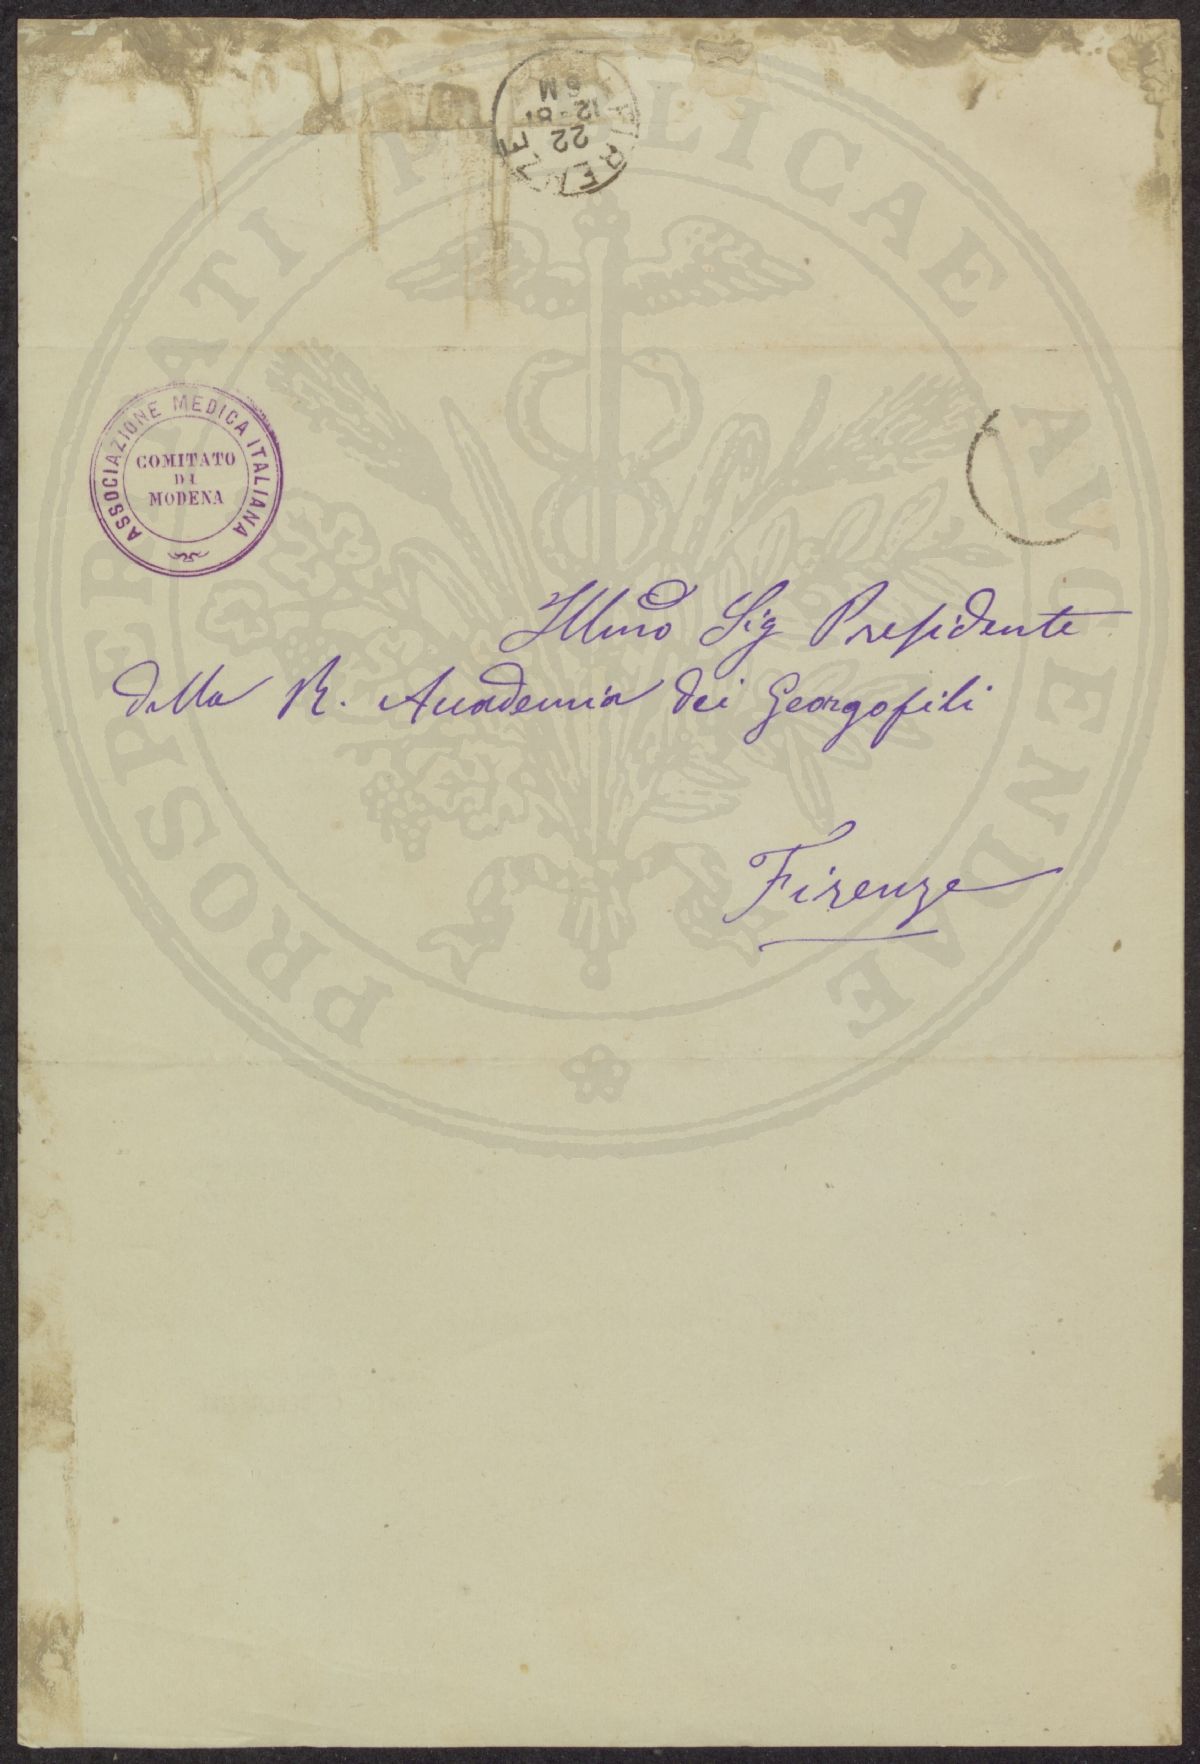 FIRENZE
22
12-
6 M
ASSOCIAZIONE MEDICA ITALIANA
COMITATO
DI
MODENA
Illmo Sig Presidente
della R. Accademia dei Georgofili
Firenze
PROSPERITATI PUBLICAE AUGENDAE